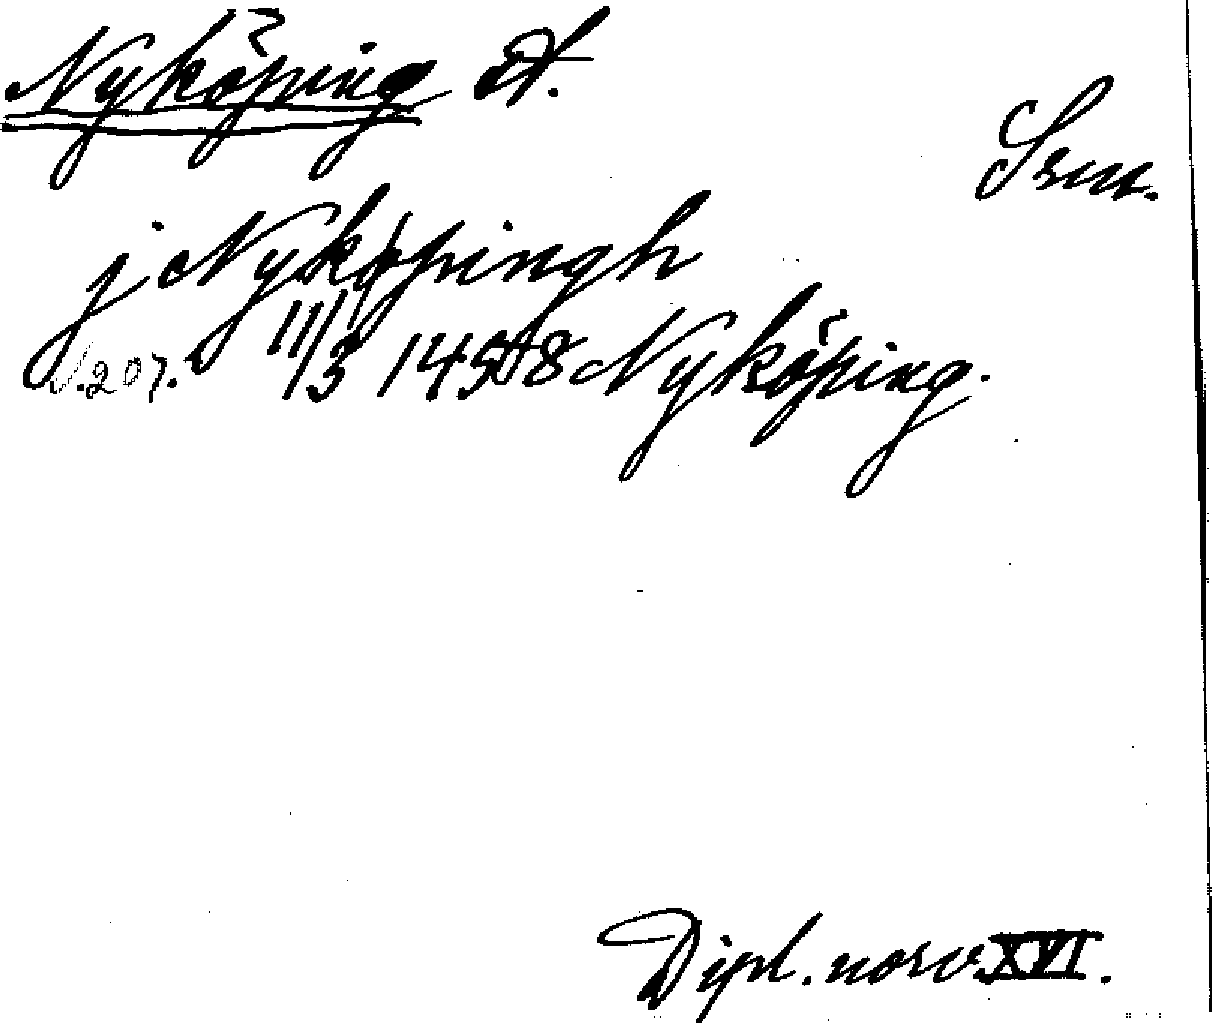 Nyköping st.
Srm.
j Nykøpingh
s. 207. 11/3 1458 Nyköping.
Dipl. norv. XVI.